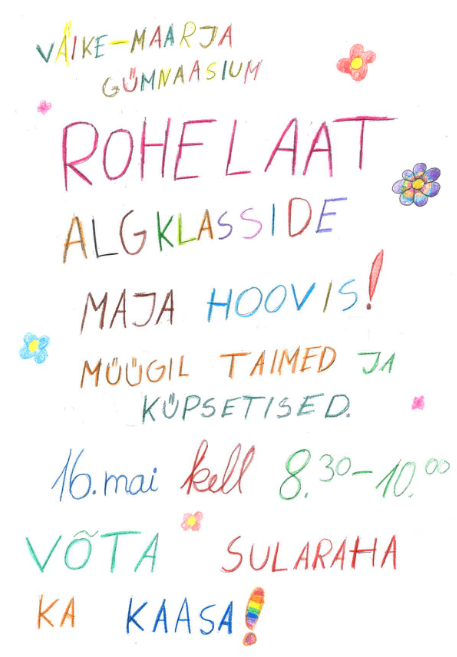 VÄIKE-MAARJA
GÜMNAASIUM
ROHELAAT
ALGKLASSIDE
MAJA HOOVIS!
MÜÜGIL TAIMED JA
KÜPSETISED.
16. mai kell 8.30-10.00
VÕTA SULARAHA
KA KAASA!